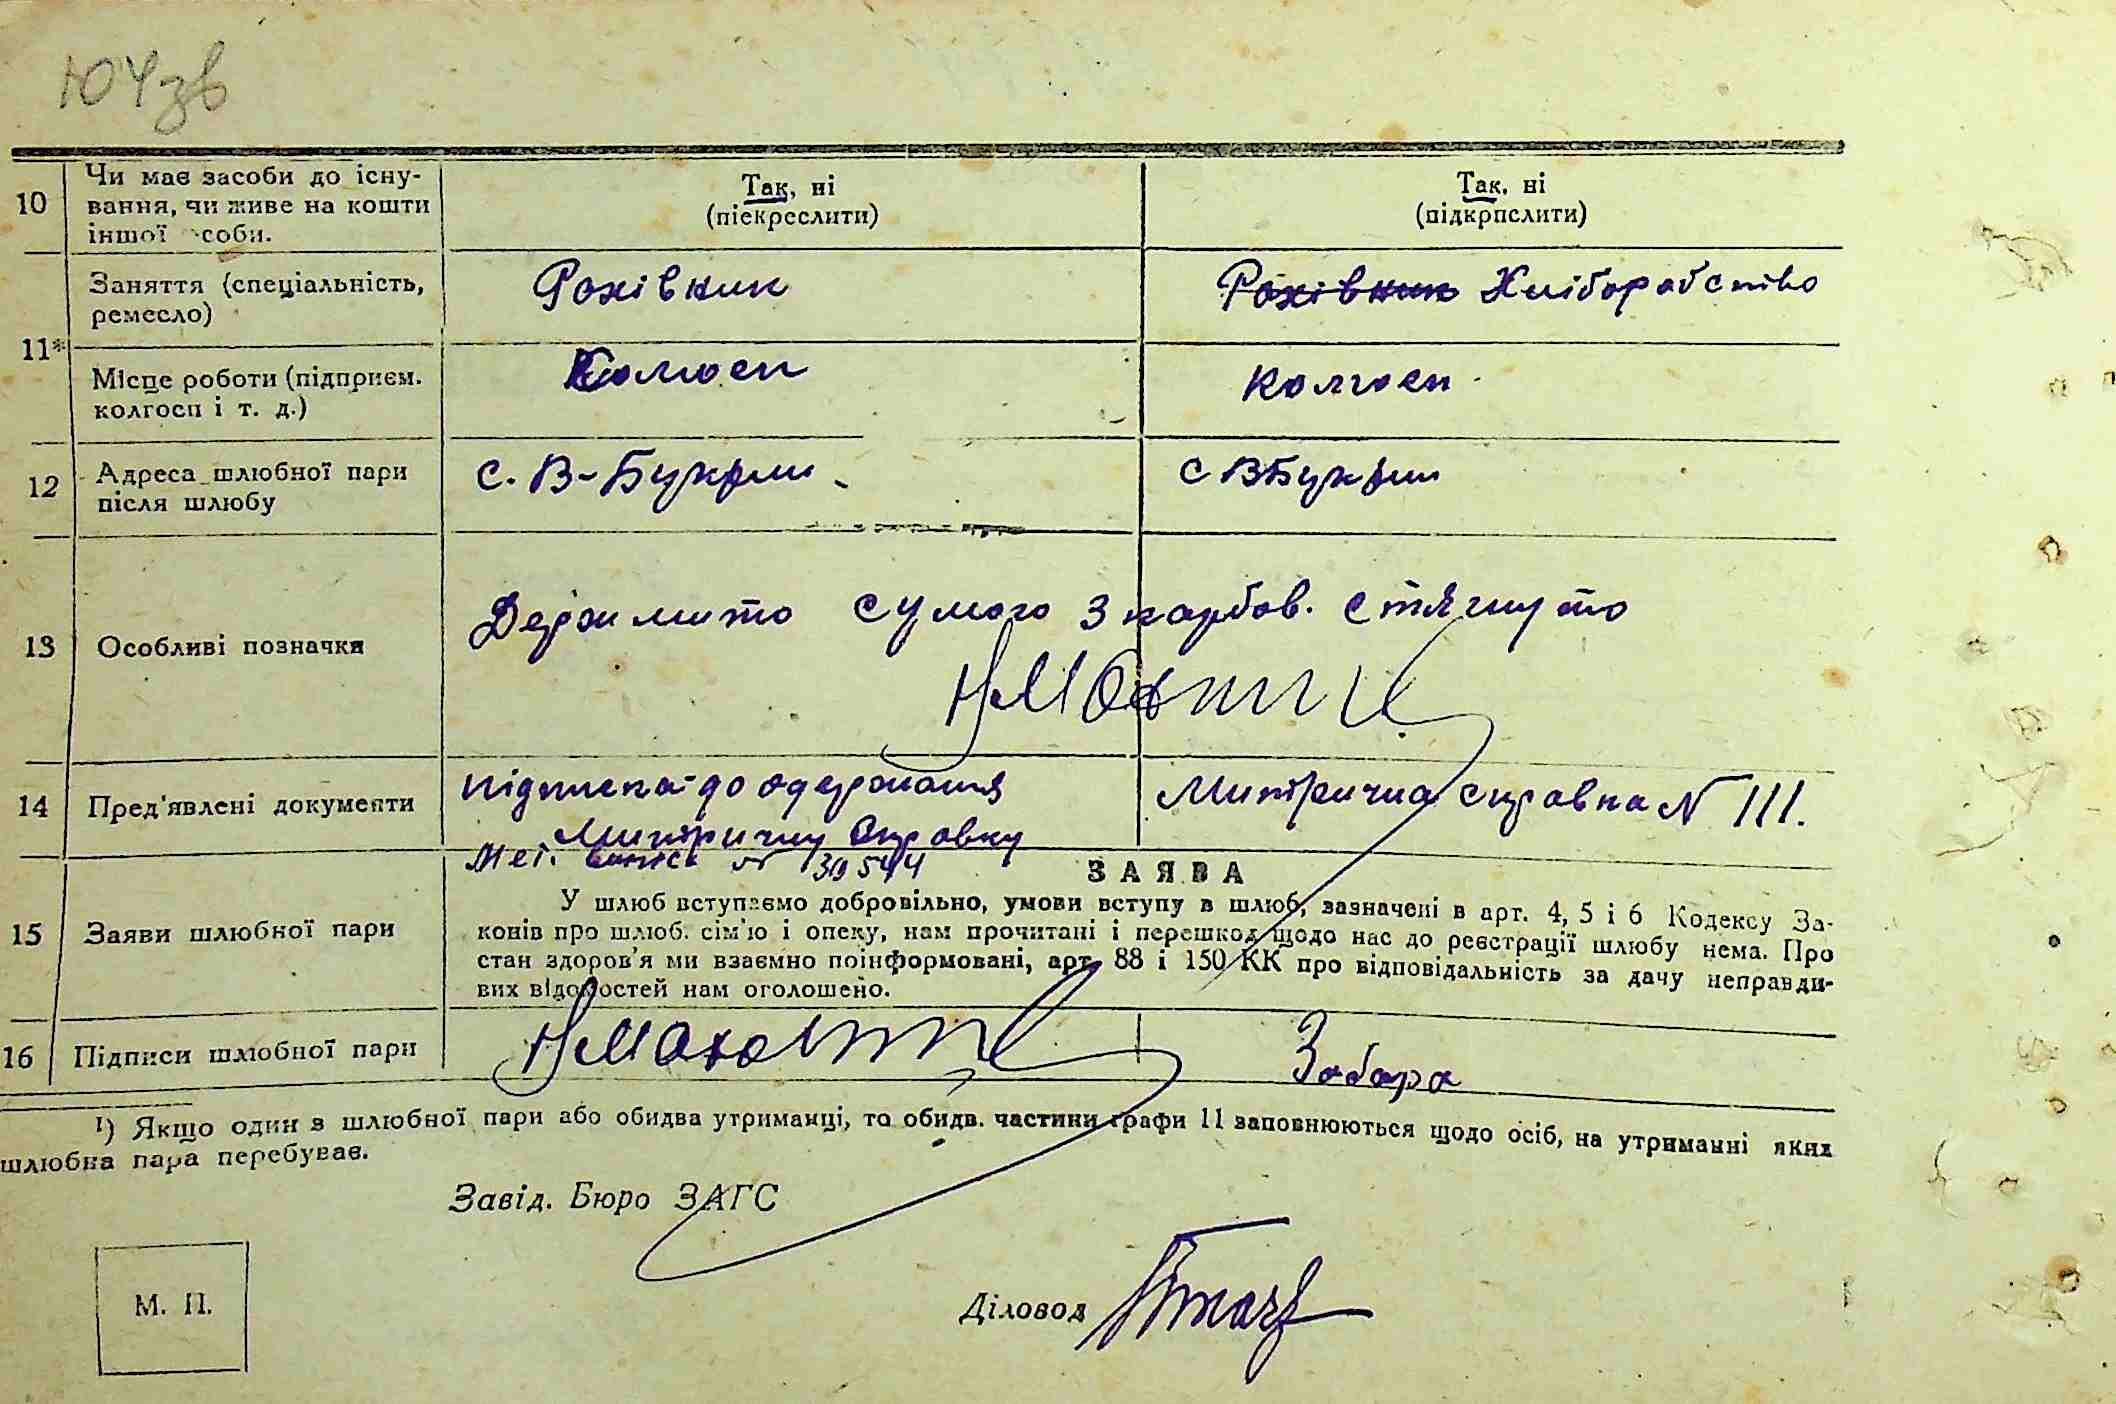 10
Чи має засоби до існу-
вання, чи живе на кошти
іншої особи.
Так, ні
(піекреслити)
Так. ні
(підкрпслити)
11*
Заняття (спеціальність,
ремесло)
Рахівник
Рахівник Хліборобство
Місце роботи (підприєм.
колгосп і т. д.)
Колгосп
Колгосп
12
Адреса шлюбної пари
після шлюбу
с. В-Букрин
с ВБукрин
13
Особливі позначки
Держмито сумого 3 карбов. стягнуто
14
Пред'явлені документи
підписка до одержання
Митричну справку
Мет. випис № 30544
Митрична справка N 111.
15
Заяви шлюбної пари
ЗАЯВА
У шлюб вступаємо добровільно, умови вступу в шлюб, зазначені в арт. 4, 5 і 6 Кодексу За-
конів про шлюб. сім'ю і опеку, нам прочитані і перешкод щодо нас до реєстрації шлюбу нема. Про
стан здоров'я ми взаємно поінформовані, арт. 88 і 150 КК про відповідальність за дачу неправди-
вих відомостей нам оголошено.
16
Підписи шлюбної пари
Забара
1) Якщо один з шлюбної пари або обидва утриманці, то обидв. частини графи 11 заповнюються щодо осіб, на утриманні яких
шлюбна пара перебуває.
Завід. Бюро ЗАГС
М. П.
Діловод